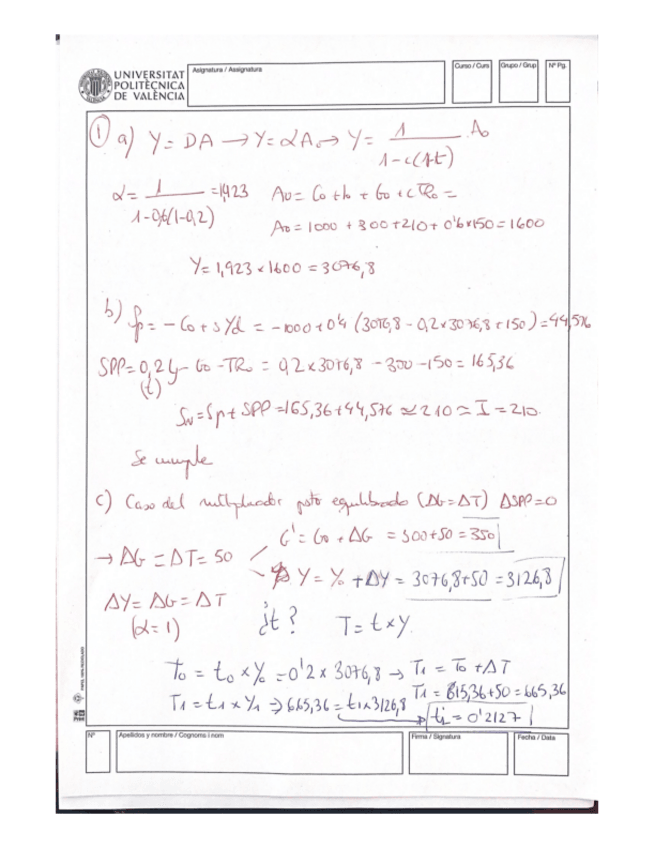 UNIVERSITAT
POLITÈCNICA
DE VALÈNCIA
Asignatura / Assignatura
Curso / Curs
Grupo / Grup
Nº Pg.
1 a) Y = DA → Y = αA₀ → Y = 1 / (1-c(1-t)) · A₀
α = 1 / (1-0,6(1-0,2)) = 1,923 A₀ = C₀ + I₀ + G₀ + cTR₀ =
A₀ = 1000 + 300 + 210 + 0'6 x 150 = 1600
Y = 1,923 x 1600 = 3076,8
b) Sp = - C₀ + s Yd = -1000 + 0'4 (3076,8 - 0,2 x 3076,8 + 150) = 44,576
SPP = 0,2 Y - G₀ - TR₀ = 0,2 x 3076,8 - 300 - 150 = 165,36
(t)
SN = Sp + SPP = 165,36 + 44,576 ≃ 210 ≃ I = 210.
Se cumple
c) Caso del multiplicador ppto equilibrado (ΔG = ΔT) ΔSPP = 0
G' = G₀ + ΔG = 300 + 50 = 350
→ ΔG = ΔT = 50
Y = Y₀ + ΔY = 3076,8 + 50 = 3126,8
ΔY = ΔG = ΔT
(α = 1)
¿t? T = t x Y
T₀ = t₀ x Y₀ = 0'2 x 3076,8 → T₁ = T₀ + ΔT
T₁ = 615,36 + 50 = 665,36
T₁ = t₁ x Y₁ ⇒ 665,36 = t₁ x 3126,8
t₁ = 0'2127
Nº
Apellidos y nombre / Cognoms i nom
Firma / Signatura
Fecha / Data